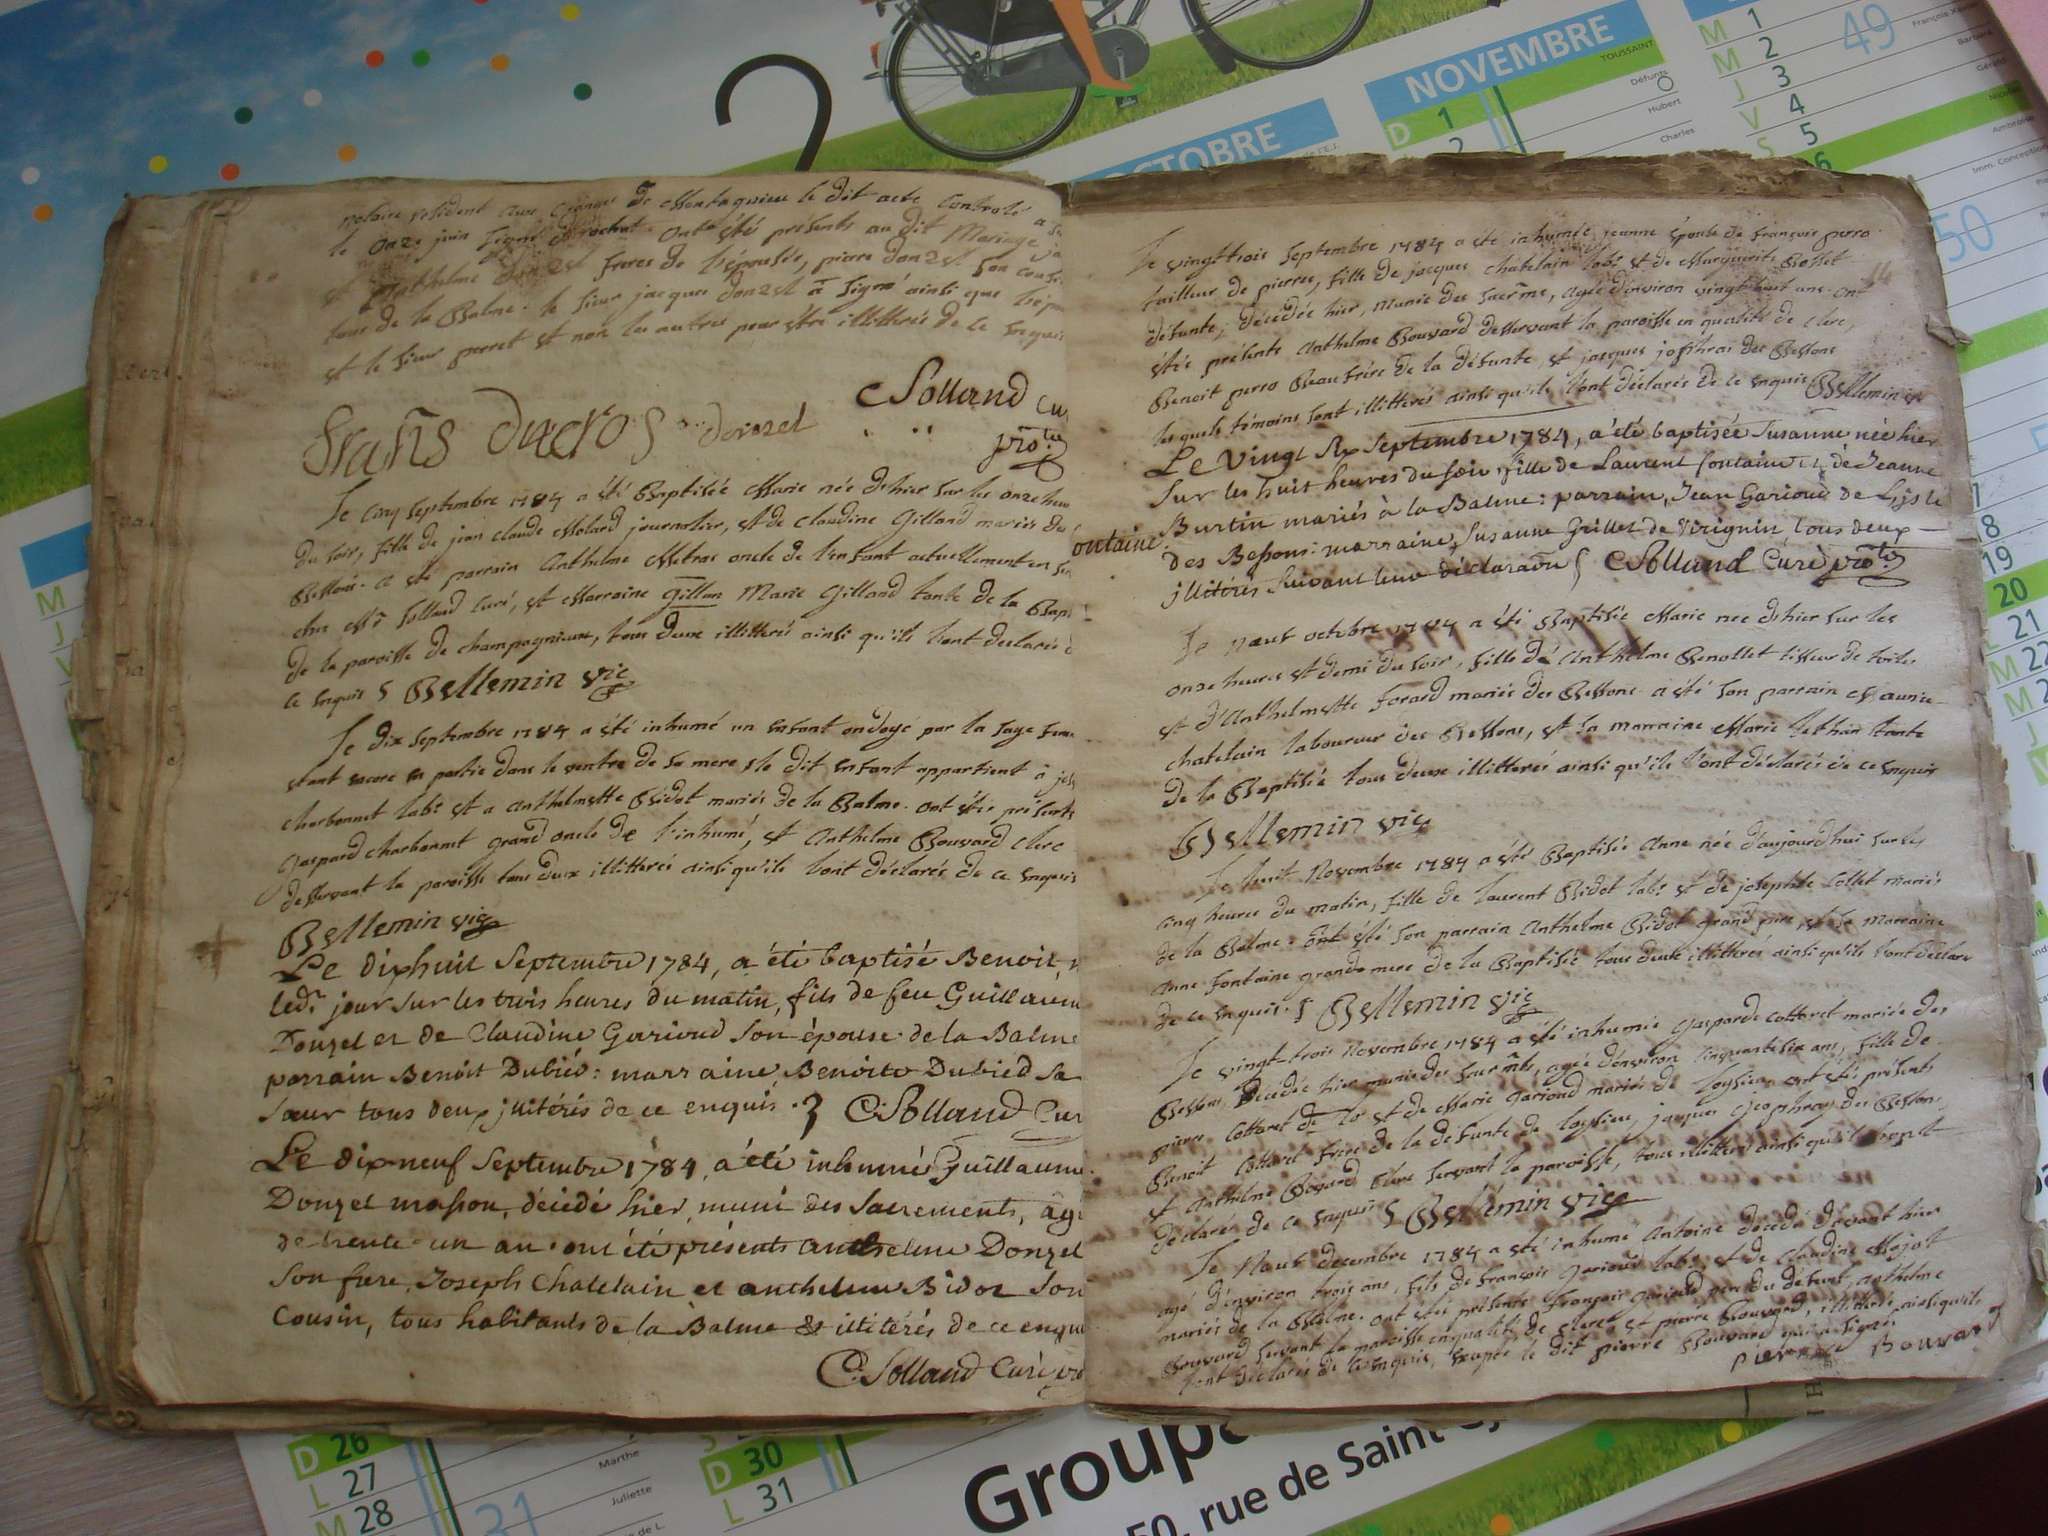 notaire résident aux granges de Montagnieu le dit acte Controlé a
le onze juin signé ont été présents au dit Mariage
et Anthelme donzel freres de l'épouse, pierre donzel son cousin
tous de la Balme. le sieur jacques donzel à signé ainsi que
et le sieur perret et non les autres pour être illitterés de ce enquis
C Solland cu
frañs Duclos donzel
pro.re
Le cinq septembre 1784 a été Baptisée Marie née d'hier sur les onze heu
du soir, fille de jean claude Molard journalier, et de claudine Gilland mariés des
Bessons. a été parrain Anthelme Metras oncle de l'enfant actuellement en
chez Mr Solland Curé, et Marraine Gillan Marie Gilland tante de la Bap
de la paroisse de champagnieux, tous deux illitterés ainsi qu'ils l'ont declarés d
ce enquis § Bellemin vic
Le dix septembre 1784 a été inhumé un enfant ondoyé par la sage fem
etant encore en partie dans le ventre de sa mere, le dit enfant appartient à
charbonnet labr et a anthelmette Bidot mariés de la Balme. ont étés présents
gaspard charbonnet grand oncle de l'inhumé, et anthelme Bouvard clerc
desservant la paroisse tous deux illitterés ainsi qu'ils l'ont déclarés de ce enquis
Bellemin vic
Le dixhuit Septembre 1784, a été baptisé Benoit,
led.r jour sur les trois heures du matin, fils de feu Guillaum
Donzel et de Claudine Garioud son épouse de la Balme
parrain Benoit Dubied: marraine, Benoite Dubied sa
sœur tous deux illitérés de ce enquis. C. Solland Cur
Le dixneuf Septembre 1784, a été inhumé Guillaume
Donzel masson, décédé hier, muni des sacrements, âgé
de trente-un an. ont été présents anthelme Donzel
son frere, Joseph Chatelain et anthelme Bidot son
Cousin, tous habitants de la Balme & illitérés de ce enqu
C. Solland Curé
Le vingt trois septembre 1784 a été inhumée jeanne épouse de françois perro
tailleur de pierres, fille de jacques châtelain labr et de Marguerite Bosset
défunte; décédée hier, munie des sacr̃ms, agée d'environ vingt huit ans. ont
étés présents Anthelme Bouvard desservant la paroisse en qualité de clerc,
Benoit perro Beaufrére de la défunte, et jacques jofhrai des Bessons
lesquels témoins sont illitterés ainsi qu'ils l'ont déclarés de ce enquis Bellemin vic
Le Vingt six Septembre 1784, a été baptisée Susanne née hier
sur les huit heures du soir, fille de Laurent fontaine et de Jeanne
ontaine Burtin mariés à la Balme: parrain, Jean Garioud de
des Bessons: marraine, Susanne Grillet de Virignin, tous deux
illitérés suivant leur déclaraõn § C Solland Curé pro.re
Le neuf octobre 1784 a été Baptisée Marie née d'hier sur les
onze heures et demi du soir, fille de Anthelme Benollet tisseur de toiles
et d'Anthelmette forard mariés des Bessons. a été son parrain Maurice
chatelain laboureur des Bessons, et sa marraine Marie tante
de la Baptisée tous deux illitterés ainsi qu'ils l'ont déclarés de ce enquis
Bellemin vic
Le huit Novembre 1784 a été Baptisée Anne née d'aujourdhui sur les
cinq heures du matin, fille de laurent Bidot labr et de josephte Collet mariés
de la Balme. ont été son parrain Anthelme Bidot grand pere, et sa marraine
Anne fontaine grande mere de la Baptisée tous deux illitterés ainsi qu'ils l'ont déclarés
de ce enquis. § Bellemin vic
Le vingt-trois Novembre 1784 a été inhumée Gasparde Cottaret mariée des
Bessons Décédée hier munie des sacr̃mts, agée d'environ cinquante six ans, fille de
pierre Cottaret et de Marie Gariond mariés de loysieu. ont étés présents
Benoit Cottaret frére de la défunte de loysieu, jacques des Bessons,
et Anthelme Bovard Clerc servant la paroisse, tous illitterés ainsi qu'ils l'ont
déclarés de ce enquis § Bellemin vic
Le Neuf décembre 1784 a été inhumé Antoine décédé d'avant hier
agé d'environ trois ans, fils de françois Gariond labr et de claudine Mojat
mariés de la Balme. ont étés présents françois Gariond pere du défunt, Anthelme
Bouvard servant la paroisse en qualité de clerc, et pierre Bouvard, illitterés ainsi qu'ils
l'ont déclarés de ce enquis, excepté le dit pierre Bouvard qui a signé.
pierre Bouvard
OCTOBRE
NOVEMBRE
TOUSSAINT
D 1
2
Défunts
Hubert
Charles
M 1
M 2
J 3
V 4
S 5
6
49
50
François-Xavier
Barbara
Gérald
Ambroise
Imm. Conception
18
19
20
L 21
M 22
M
J
M
J
V
D 26
L 27
M 28
Marthe
Juliette
31
D 30
L 31
Groupa
50, rue de Saint